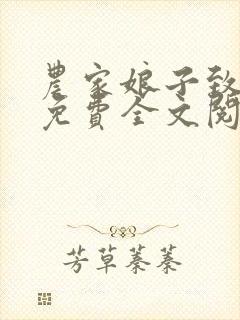 農家娘子致
免費全文閱
芳草萋萋